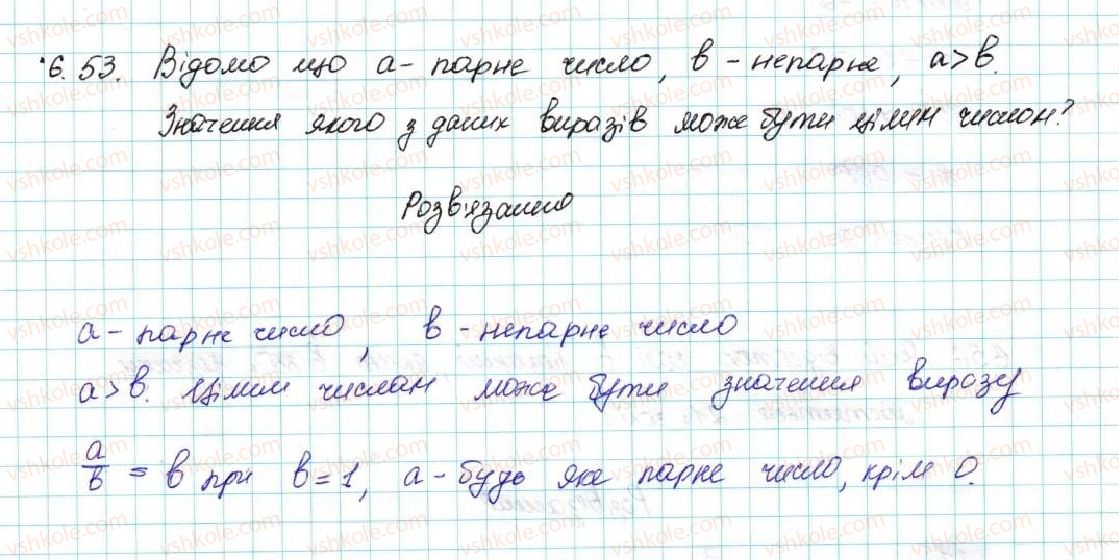 6.53. Відомо що a - парне число, в - непарне, a>в.
Значення якого з даних виразів може бути цілим числом?
Розв'язання
a - парне число, в - непарне число
a>в. Цілим числом може бути значення виразу
a/в = в при в=1, a - будь яке парне число, крім 0.
vshkole.com